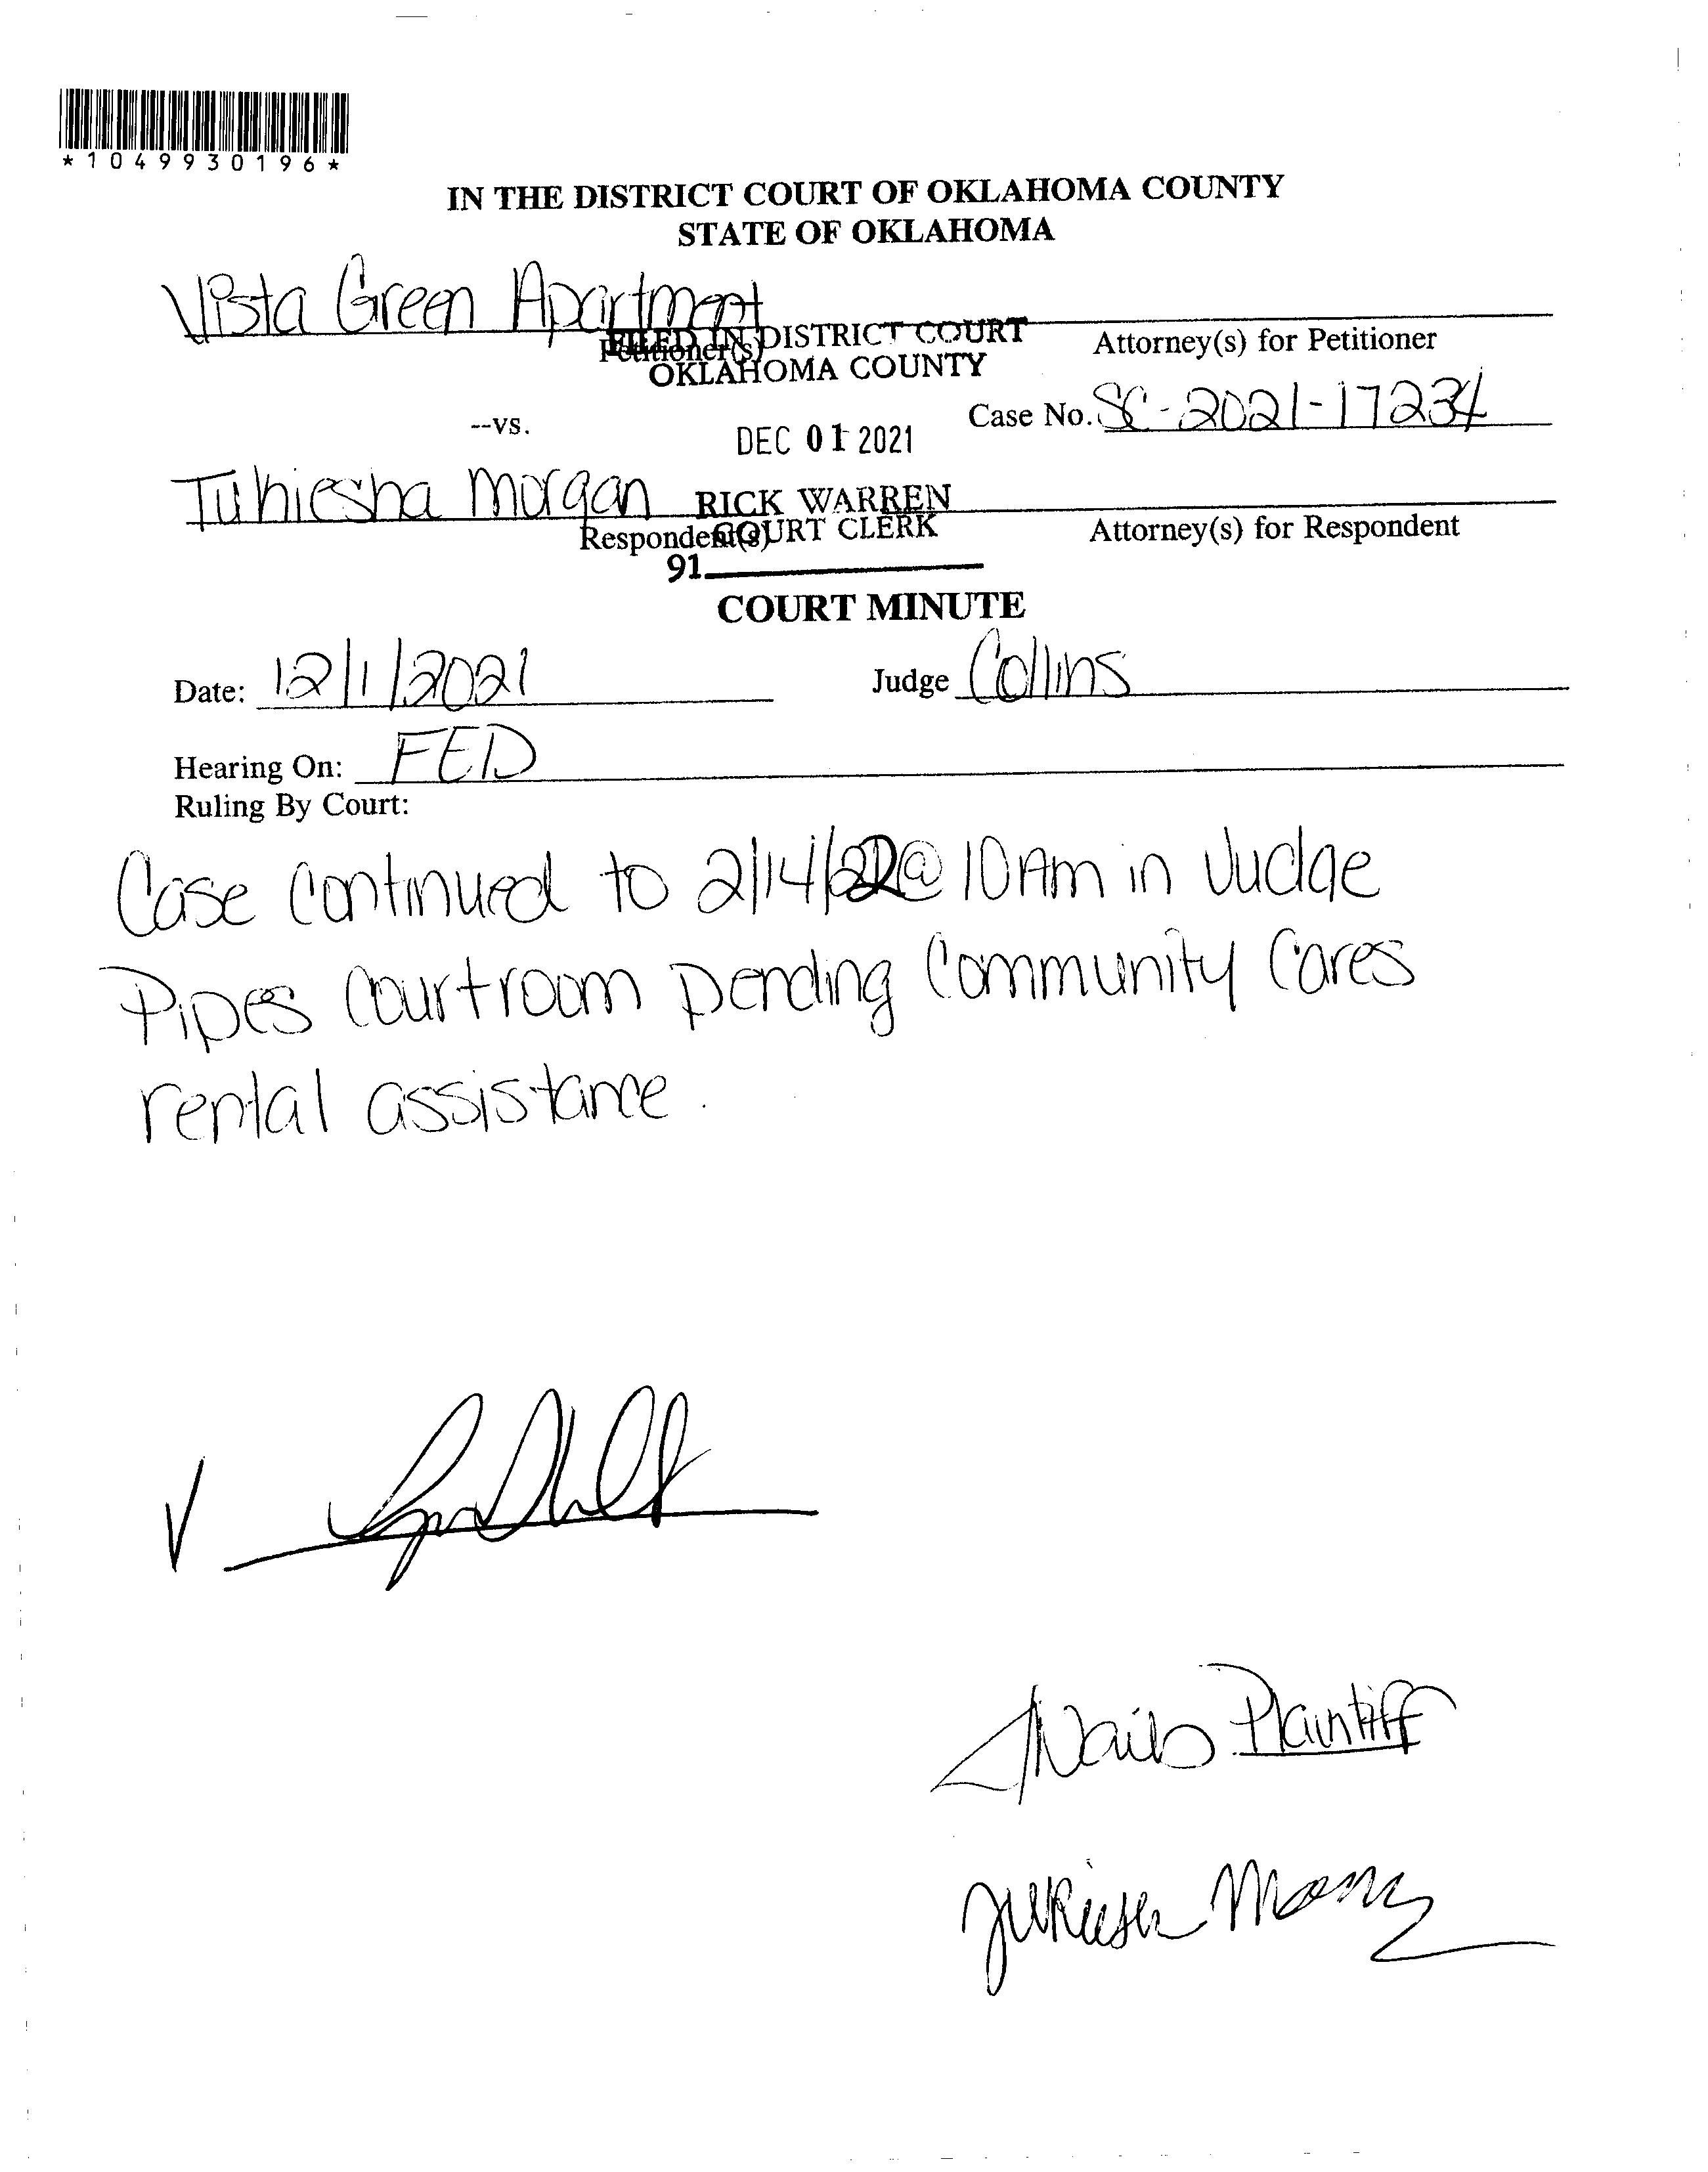 *1049930196*
IN THE DISTRICT COURT OF OKLAHOMA COUNTY
STATE OF OKLAHOMA
Vista Green Apartment
Petitioner(s)
Attorney(s) for Petitioner
FILED IN DISTRICT COURT
OKLAHOMA COUNTY
--vs.
DEC 01 2021
Case No. SC-2021-17234
Tukiesha Morgan
RICK WARREN
COURT CLERK
Respondent(s)
Attorney(s) for Respondent
91
COURT MINUTE
Date: 12/1/2021
Judge Collins
Hearing On: FED
Ruling By Court:
Case continued to 2/14/22 @ 10 Am in Judge
Pipes Courtroom pending Community Cares
rental assistance.
Plaintiff